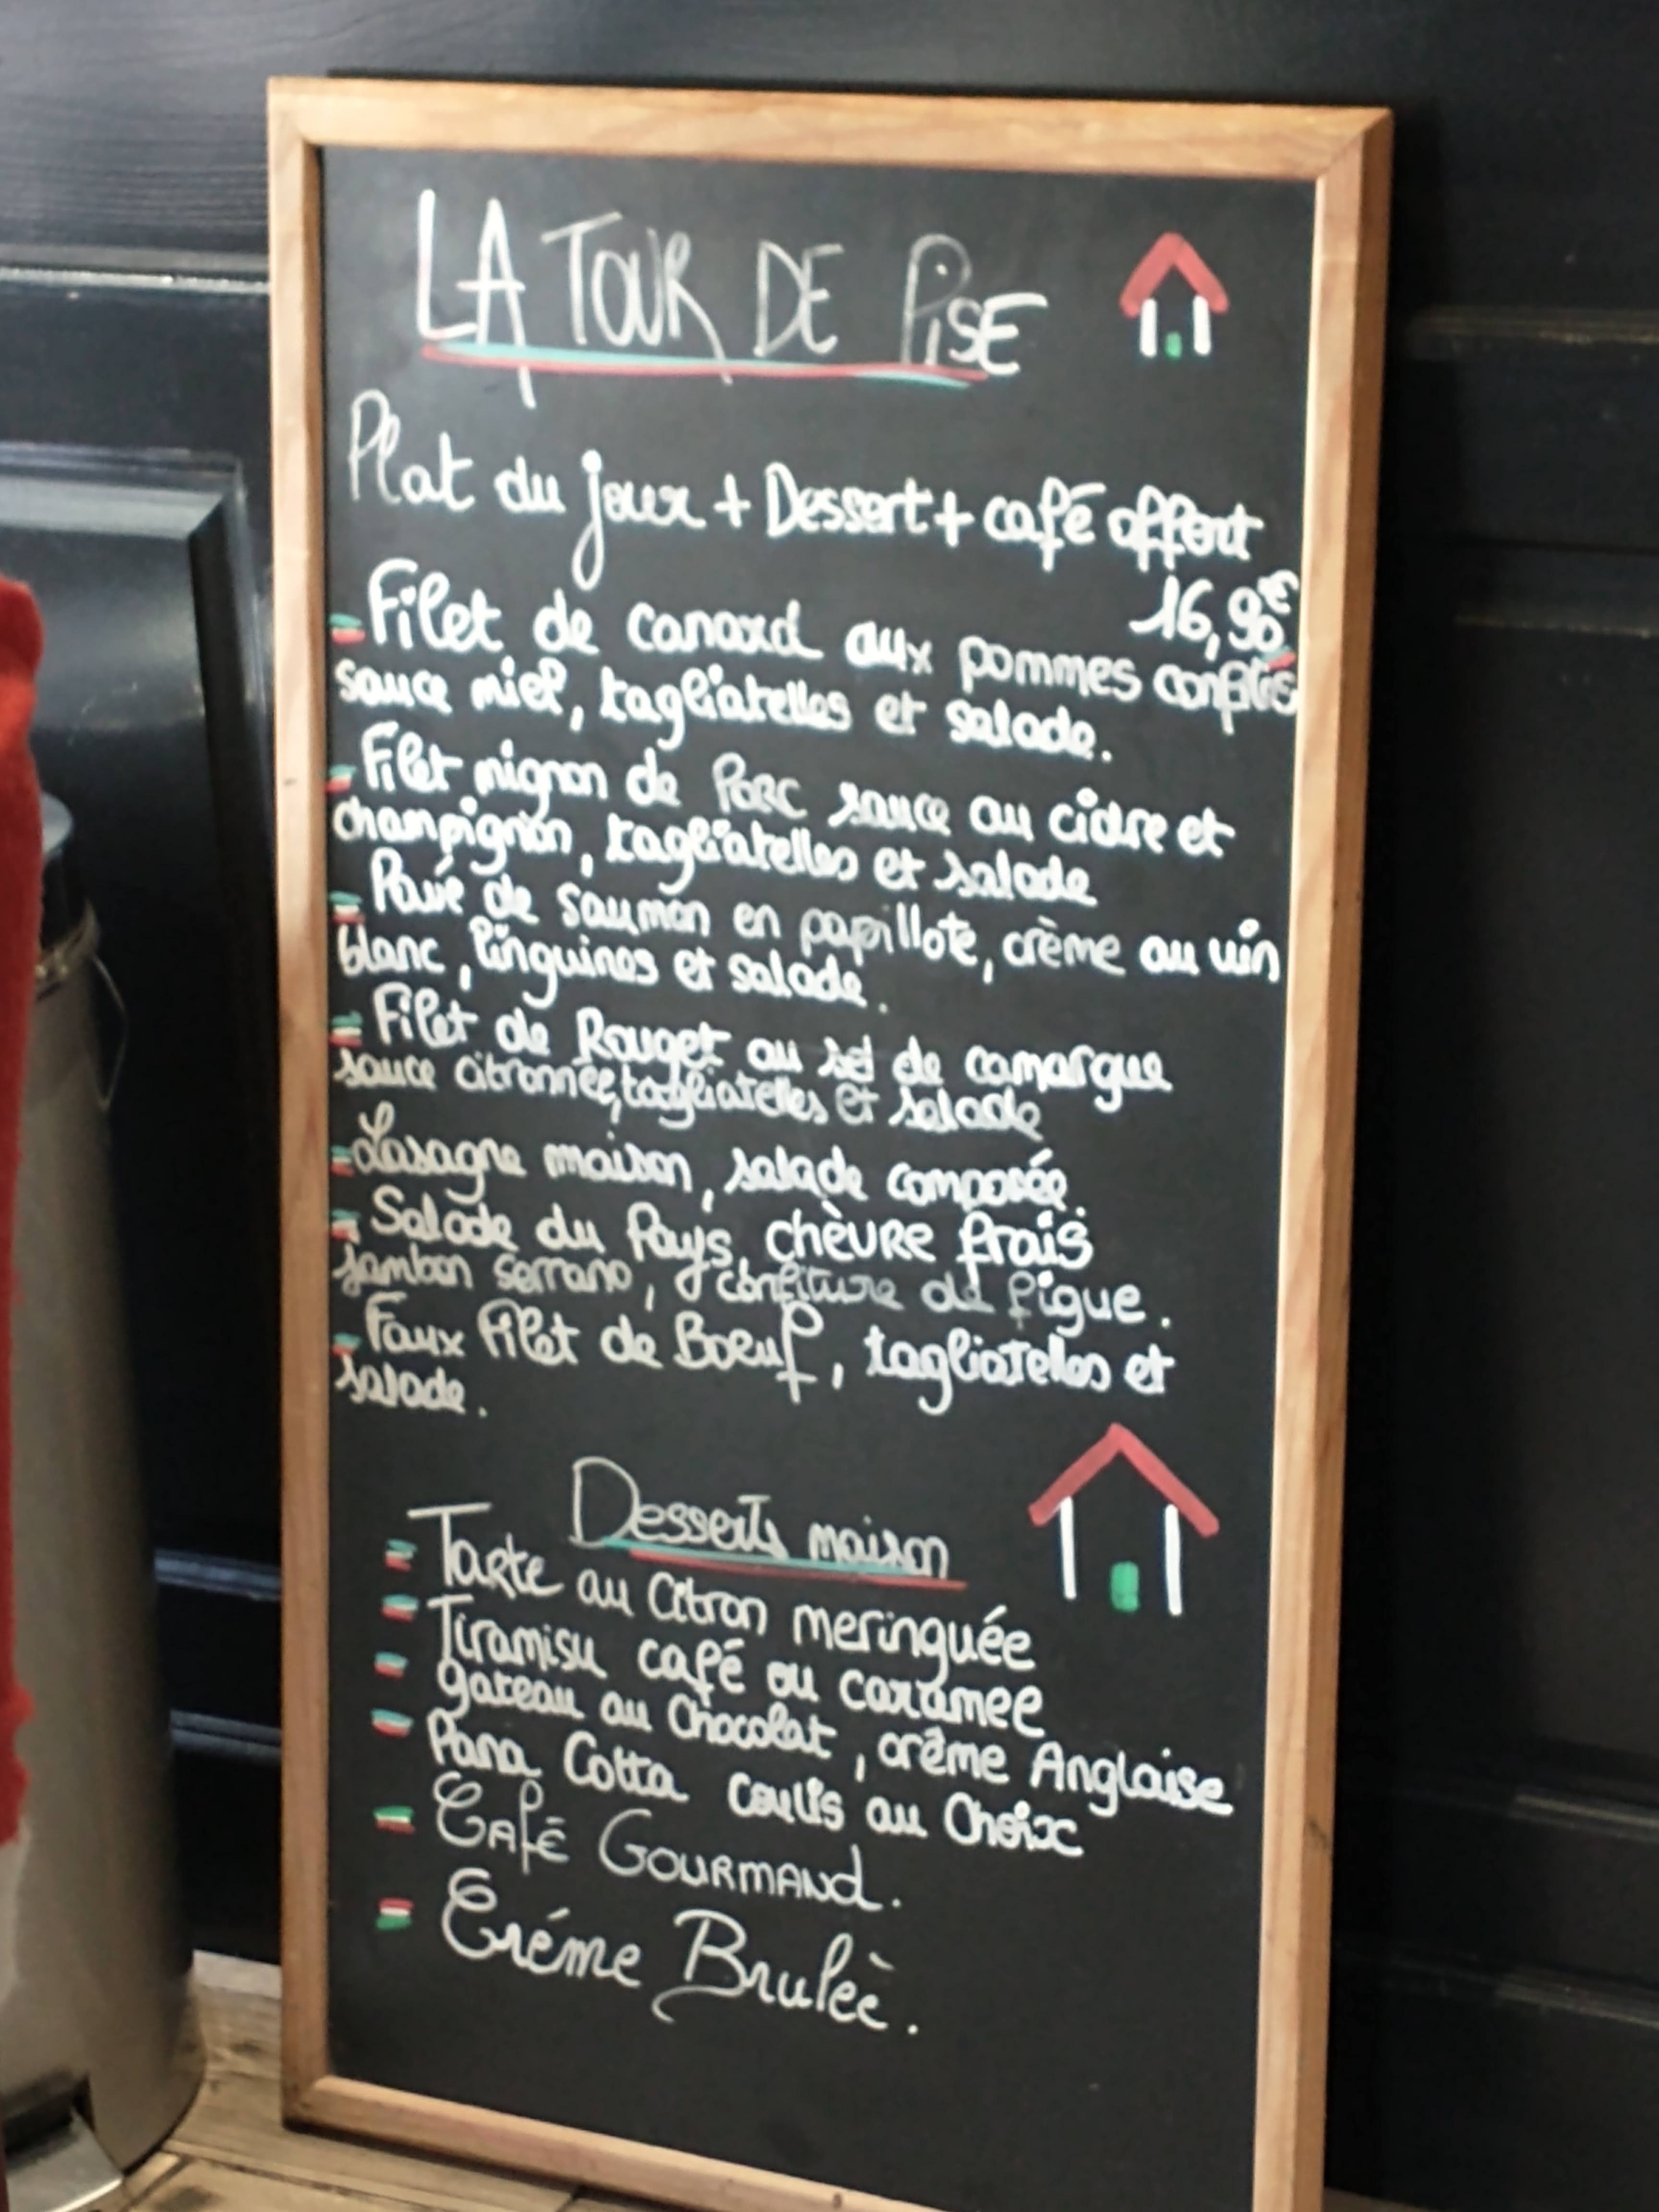 LA TOUR DE PISE
Plat du jour + Dessert + café offert
16,90€
Filet de canard aux pommes confites
sauce miel, tagliatelles et salade.
Filet mignon de Porc sauce au cidre et
champignon, tagliatelles et salade
Pavé de saumon en papillote, crème au vin
blanc, linguines et salade.
Filet de Rouget au sel de camargue
sauce citronnée, tagliatelles et salade
Lasagne maison, salade composée.
Salade du Pays, chèvre frais
Jambon serrano, confiture de figue.
Faux Filet de Boeuf, tagliatelles et
salade.
Desserts maison
Tarte au Citron meringuée
Tiramisu café ou caramel
gateau au Chocolat, crême Anglaise
Pana Cotta coulis au Choix
CAFÉ GOURMAND.
Créme Bruleè.